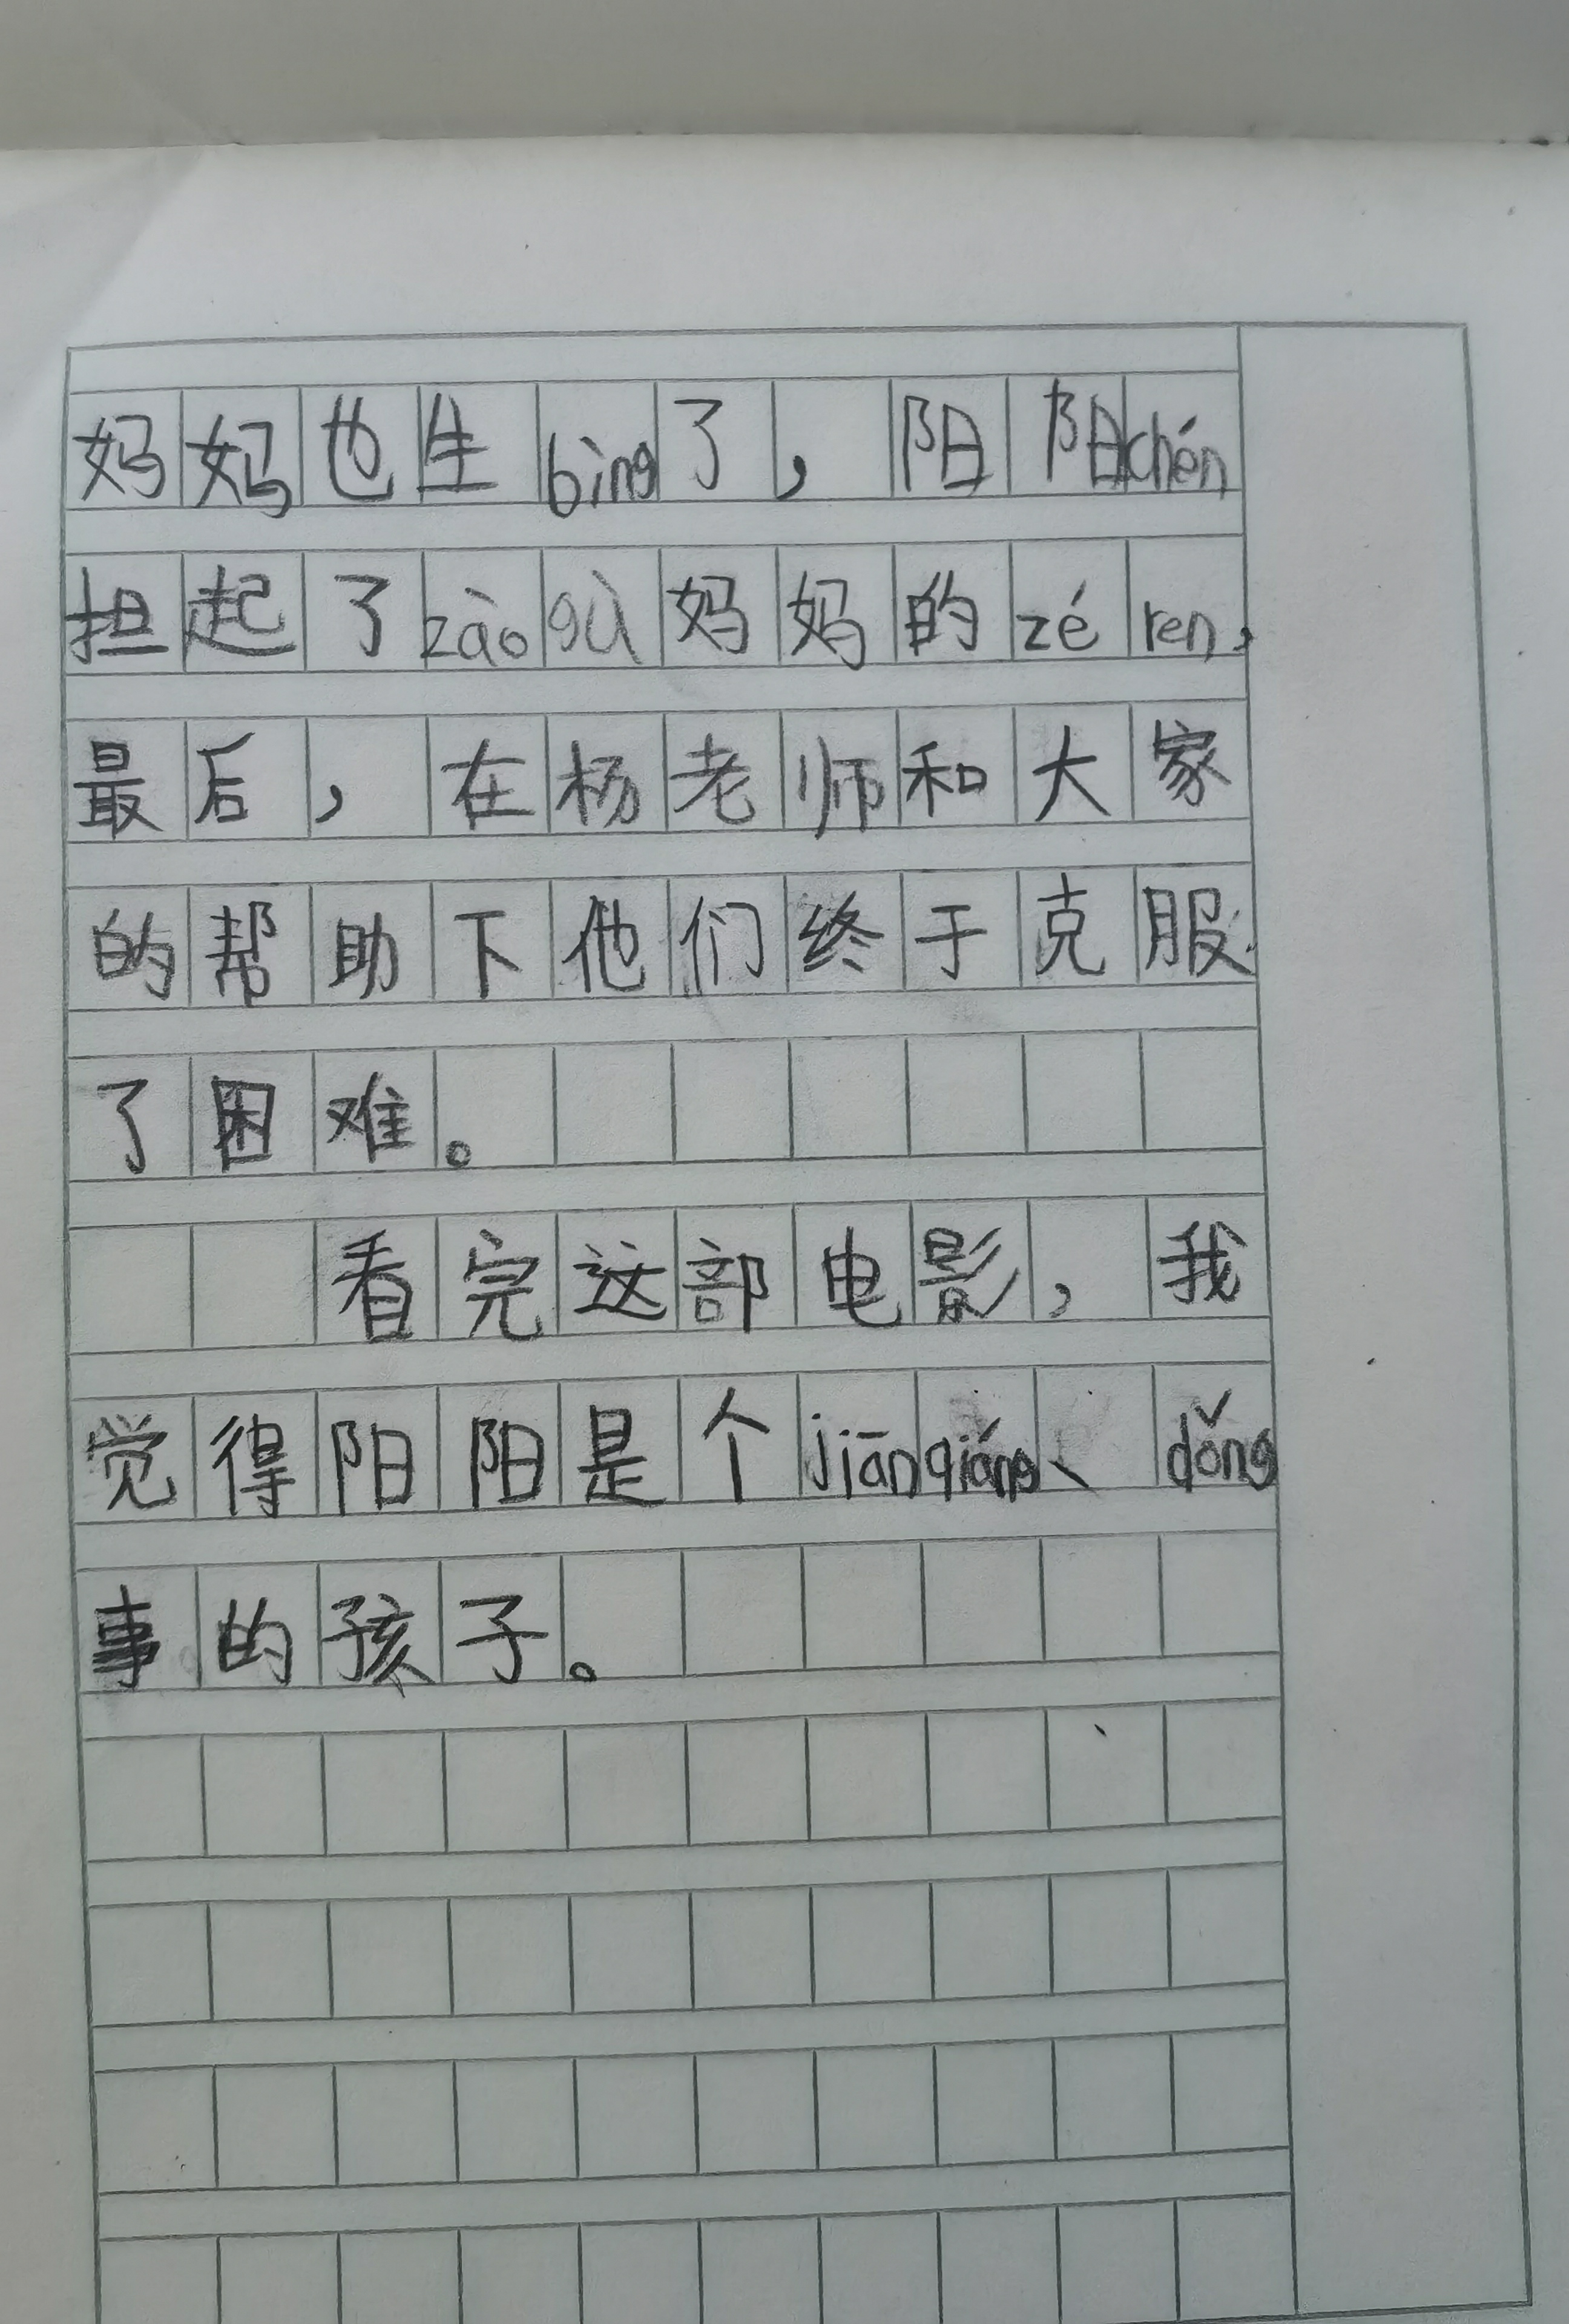 妈妈也生bìng了，阳阳chén
担起了zàogù妈妈的zéren，
最后，在杨老师和大家
的帮助下他们终于克服
了困难。
看完这部电影，我
觉得阳阳是个jiānqiáng、dǒng
事的孩子。